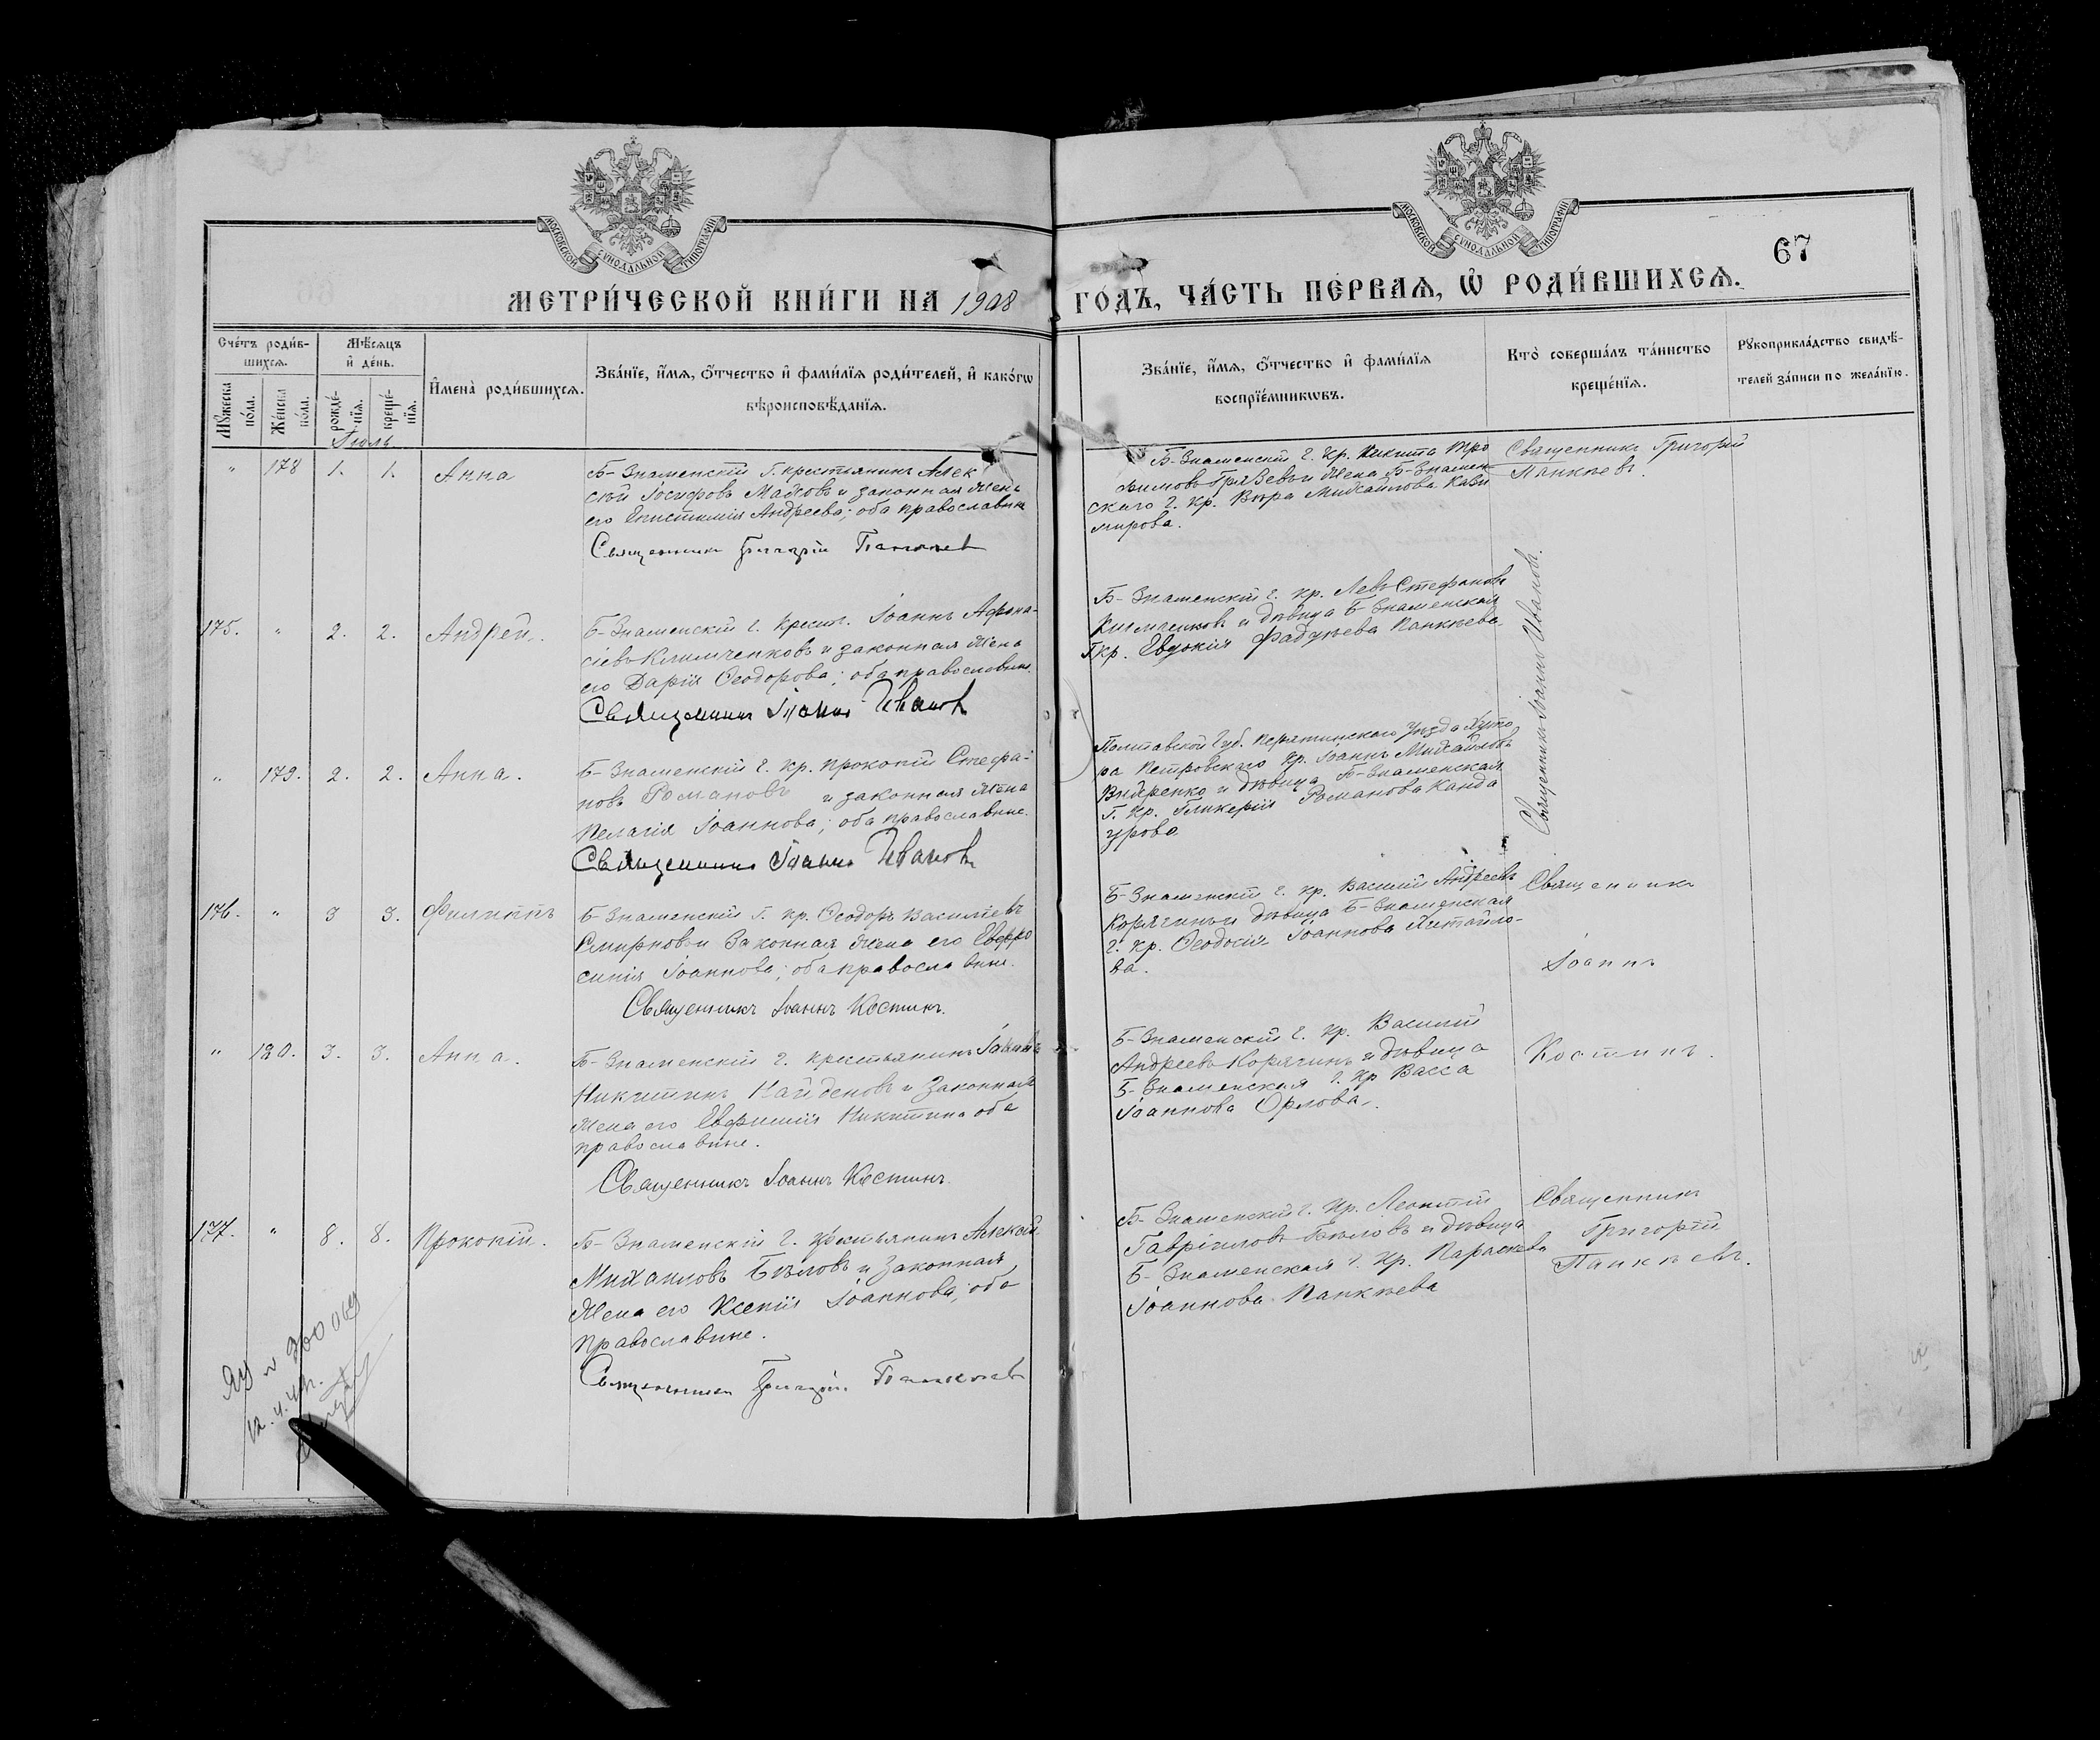 МОСКОВСКОЙ СУНОДАЛЬНОЙ ТИПОГРАФІИ
МОСКОВСКОЙ СУНОДАЛЬНОЙ ТИПОГРАФІИ
67
МЕТРИ́ЧЕСКОЙ КНИ́ГИ НА 1908 ГО́ДЪ, ЧА́СТЬ ПЕ́РВАѦ, Ѡ҆ РОДИ́ВШИХСѦ.
Сче́тъ роди́в-
шихсѧ.
Мꙋжеска по́ла.
Же́нска по́ла.
Мѣ́сѧцъ
и҆ де́нь.
рожде́-
нїѧ.
креще́-
нїѧ.
И҆мена̀ роди́вшихсѧ.
Зва́нїе, и҆́мѧ, ѻ҆́тчество и҆ фами́лїѧ роди́телей, и҆ како́гѡ
вѣроисповѣ́данїѧ.
Зва́нїе, и҆́мѧ, ѻ҆́тчество и҆ фами́лїѧ
воспрїе́мникѡвъ.
Кто̀ соверша́лъ та́инство
креще́нїѧ.
Рꙋкоприкла́дство свидѣ́-
телей за́писи по жела́нїю.
Іюль
" 178 1. 1. Анна
Б-Знаменскій г. крестьянинъ Алек
сѣй Іосифовъ и законная жена
его Андреева; оба православные
Священникъ Григорій Панкѣев
Б-Знаменскій г. кр. Никита Тро
фимовъ и жена Б-Знамен
скаго г. кр. Вѣра Михайлова Кази
мирова.
Священникъ Григорій
Панкѣевъ.
175. " 2. 2. Андрей.
Б-Знаменскій г. крест. Іоаннъ Афана-
сіевъ Климченковъ и законная жена
его Дарія Ѳеодорова; оба православные.
Священникъ Іоаннъ Иванов
Б-Знаменскій г. кр. Левъ Стефановъ
Климченковъ и дѣвица Б-Знаменская
г. кр. Евдокія Фадѣева Панкѣева
Священникъ Іоаннъ Ивановъ.
" 179. 2. 2. Анна.
Б-Знаменскій г. кр. Прокопій Стефа-
новъ Романовъ и законная жена
Пелагія Іоаннова; оба православные.
Священникъ Іоаннъ Ивановъ
Полтавской губ. уѣзда Хуто
ра Петровскаго кр. Іоаннъ Михайловъ
и дѣвица Б-Знаменская
г. кр. Гликерія Романова Канда
урова
176. " 3 3. Филиппъ
Б-Знаменскій г. кр. Ѳеодоръ Василіевъ
Смирновъ и Законная жена его Евфро
синія Іоаннова; оба православные.
Священникъ Іоаннъ Костинъ.
Б-Знаменскій г. кр. Василій Андреевъ
Корягинъ и дѣвица Б-Знаменская
г. кр. Ѳеодосія Іоаннова Хитайло-
ва.
Священникъ
Іоаннъ
Костинъ.
" 180. 3. 3. Анна.
Б-Знаменскій г. крестьянинъ Іоаннъ
Никитинъ Найденовъ и Законная
жена его Евфимія Никитина оба
православные.
Священникъ Іоаннъ Костинъ.
Б-Знаменскій г. кр. Василій
Андреевъ Корягинъ и дѣвица
Б-Знаменская г. кр Васса
Іоаннова Орлова.
177. " 8. 8. Прокопій.
Б-Знаменскій г. крестьянинъ Алексѣй
Михаиловъ Бѣловъ и Законная
жена его Ксенія Іоаннова; оба
православные.
Священникъ Григорій Панкѣевъ
Б-Знаменскій г. кр. Леонтій
Гавріиловъ Бѣловъ и дѣвица
Б-Знаменская г. кр. Параскева
Іоаннова Панкѣева
Священникъ
Григорій
Панкѣевъ.